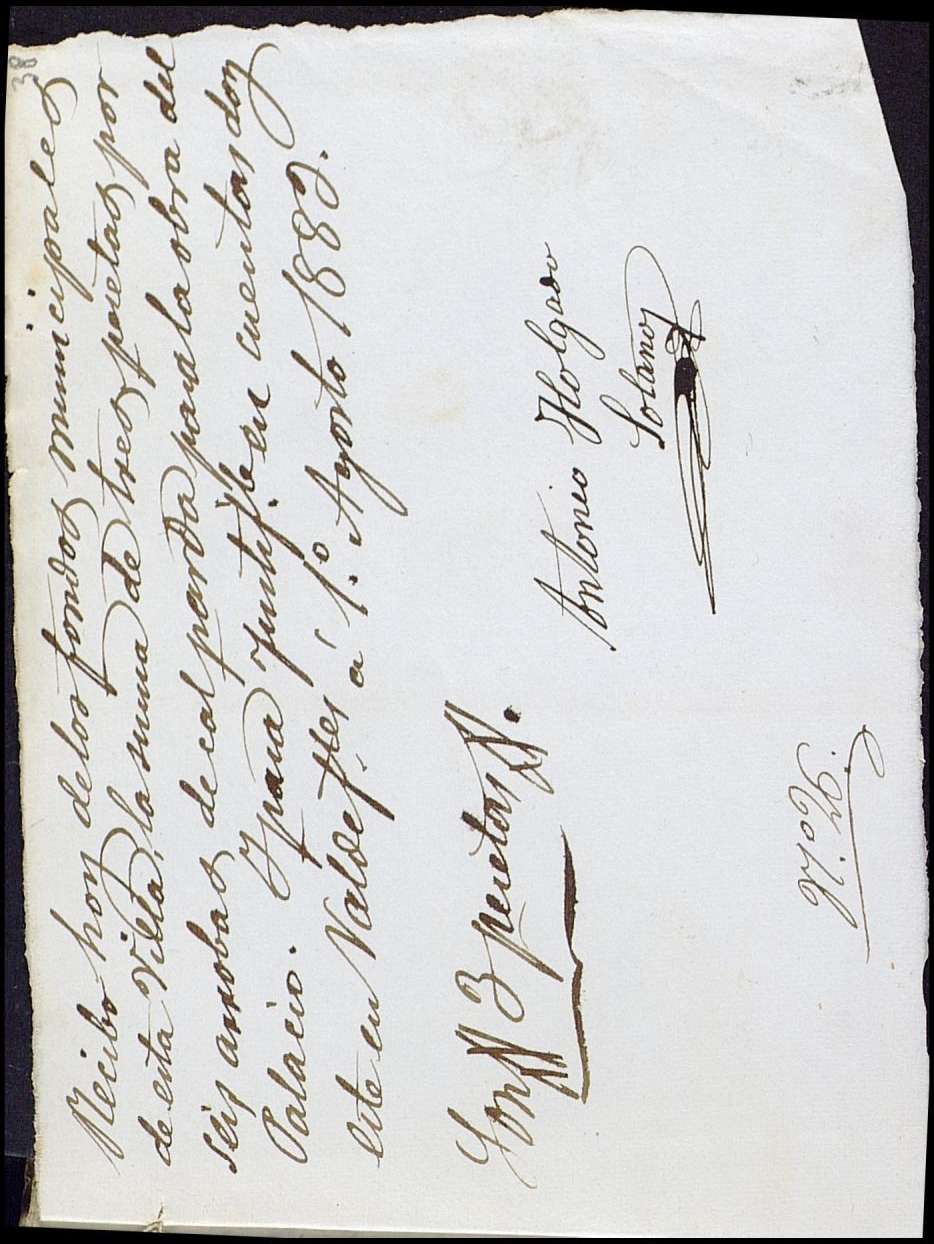 38
Recibo hoy de los fondos municipales
de esta Villa, la suma de tres pesetas por
seis arrobas de cal parda para la obra del
Palacio. Y para justif.e en cuentas doy
este en Valdef.tes á 1.º Agosto 1883.
Son 3 pesetas
Antonio Holgado
Solano